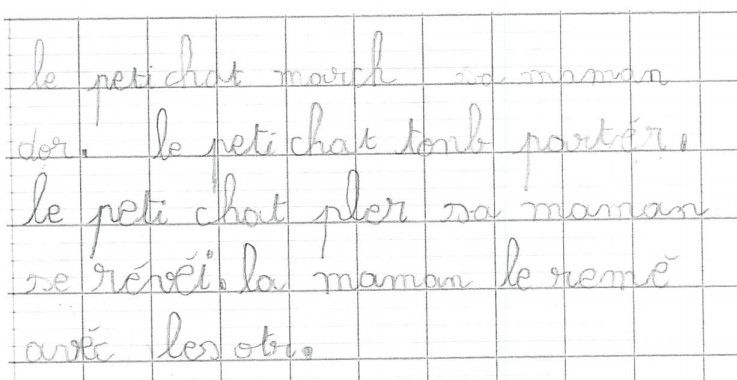 le peti chat march sa maman
dor. le peti chat tonb partér.
le peti chat pler sa maman
se révéi. la maman le remé
avéc les otr.